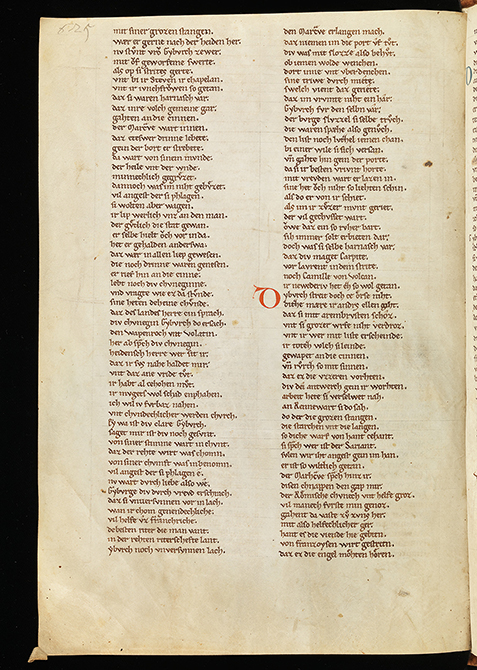 mit siner grozen stangen.
war er gerne nach der heiden her.
nv stvnt vrov kyburch ze wer.
mit vf geworfeme swerte.
als op si strites gerte.
vnt bi ir Steven ir chapelan.
vnt ir ivnchfrowen so getan.
daz si waren harnasch var.
daz inre volch gemeine gar.
gahten an die cinnen.
der Marcrave wart innen.
daz etswer drinne lebete.
gein der bort er strebete.
da wart von sinem mvnde.
der heile vnt der wnde.
minnechlich gegrvzet.
dannoch was im niht gebvzet.
vil angest der si phlagen.
si wolten aber wagen.
ir lip werlich vnz an den man.
der gvrlich die stat gewan.
er selbe hielt och vor in da.
her er gehalden anderswa.
daz war in allen liep gewesen.
die noch drinne waren genesen.
er rief hin an die cinne.
lebt noch div chvneginne.
vnd vragte wie ez da stvnde.
sine heren deheine chvnde.
daz des landes herre ein sprach.
div chvnegin kyburch do ersach.
den wapenroch vnt Volatin.
her ab sprach div chvnegin.
heidensch herre wer sit ir.
daz ir so nahe haldet mir.
vnt daz ane vride tvt.
ir habt al cehohen mvt.
ir mvget wol schid enphahen.
ich wil iv fvrbaz nahen.
vnt chvndechlicher werden chvrch.
ey wa ist div clare kyburch.
saget mir ist div noch gesvnt.
von siner stimme wart in chvnt.
daz der rehte wirt was chomn.
von siner chvnft was in benomn.
vil angest der si phlagen e.
nv wart dvrch liebe also we.
kyburge div dvrch vreud erschrach.
daz si vnversunnen vor in lach.
wan ir chom genendechliche.
vil helfe vz franchriche.
debesten riter die man vant.
in der rehten riterschefte lant.
kyburch noch vnversvnnen lach.
den Marcrave erlangen mach.
daz niemen im die porte vf tvt.
div was mit slozze also behvt.
ob iemen wolde wenchen.
dort inne vnt vberdenchen.
sine triwe dvrch miete.
swelch vient daz geriete.
daz im vrvmte niht ein har.
kyburch fvr den selbn var.
der burge slvzzel si selbe trvch.
die waren spahe also genvch.
den list noch lvtzel iemen chan.
bi einer wile si sich versan.
vnd gahte hin gein der porte.
da si ir besten vrivnt horte.
mit vreuden wart er lazen in.
sine het och niht so liehten schin.
als do er von ir schiet.
als im ir svzer mvnt geriet.
der vil gechvsset wart.
owe daz ein so rvher bart.
sih immer solt erbieten dar.
doch was si selbe harnasch var.
daz div maget Carpite.
vor Laurent in dem strite.
noch Camille von Volcan.
Ir newederiv her ez so wol getan.
kyburch streit doch ce orse niht.
diehe mare ir andrs ellen giht.
daz si mit arembrusten schoz.
vnt si grozer wrfe niht verdroz.
vnt ir wer mit liste erscheinde.
ir toten vil si leinde.
gewapet an die cinnen.
vnd rvrts so mit sinnen.
daz ez die vzzeren vorhten.
div dei antwerch gein ir worhten.
arbeit here si verselwet nah.
an Rennewart si do sah.
do der die grozen stangen.
die starchen vnt die langen.
so dicke warf von hant cehant.
si sprach wer ist der Sariant.
svlen wir iht angest gein im han.
er ist so wiltlich getan.
der Marchrave sprach hinz ir.
disen chnappen den gap mir.
der Romische chvnech vnt helfe groz.
vil manech fvrste min genoz.
gahent da vaste zv zvns her.
mit also helfechlicher ger.
hant es die viende hie gebiten.
von franzoysen wirt gestriten.
daz ez die engel mohten horen.